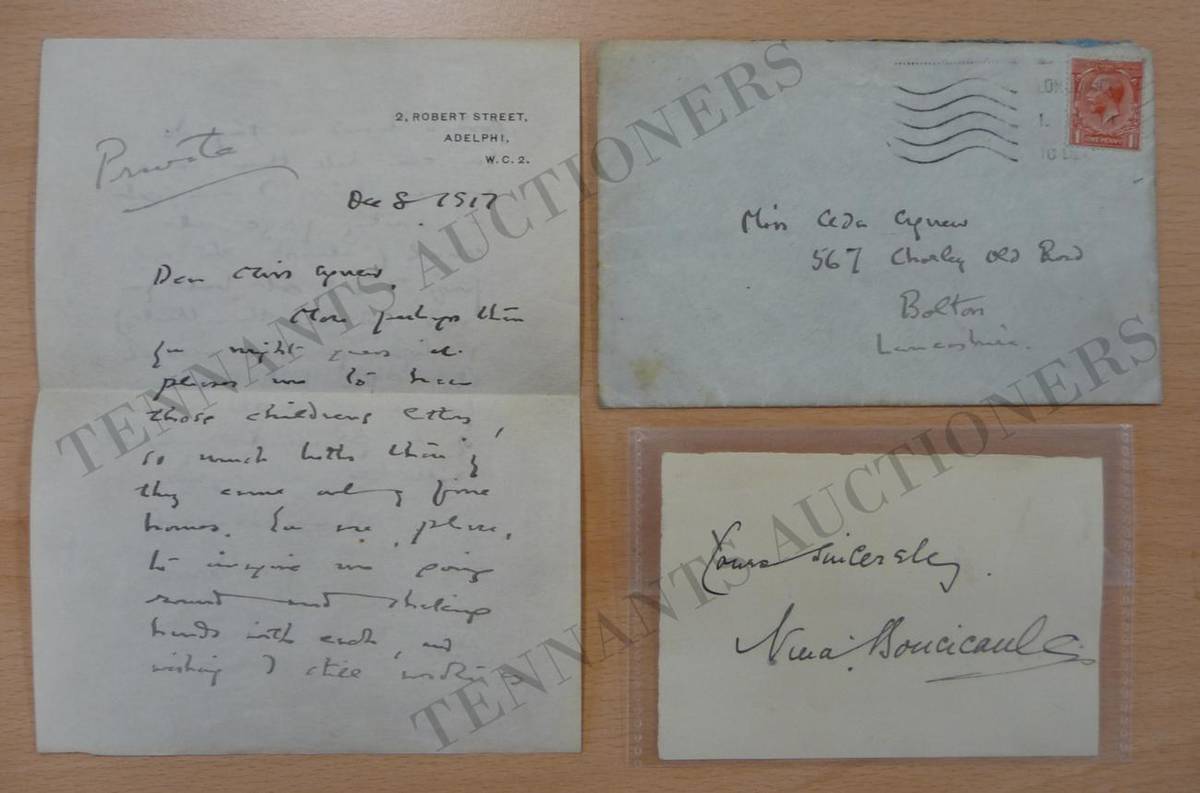 2, ROBERT STREET,
ADELPHI,
W.C.2.
Private
Dec 8 1917
Dear Miss Agnew,
More perhaps than
you might guess it
pleases me to have
those childrens letters,
so much better than if
they came only from
homes. You are, please,
to imagine me going
round and shaking
hands with each, and
wishing I
LONDON
Miss Ada Agnew
567 Chorley Old Road
Bolton
Lancashire.
ONE PENNY
Yours sincerely
Nina Boucicault
TENNANTS AUCTIONEERS
TENNANTS AUCTIONEERS